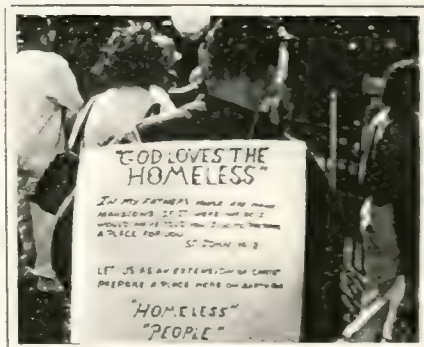 "GOD LOVES THE
HOMELESS"
IN MY FATHERS HOUSE ARE MANY
MANSIONS IF IT WERE NOT SO I
WOULD HAVE TOLD YOU I GO TO PREPARE
A PLACE FOR YOU
ST JOHN 14:2
LET US AS AN EXTENSION OF CHRIST
PREPARE A PLACE HERE ON EARTH FOR
"HOMELESS"
"PEOPLE"